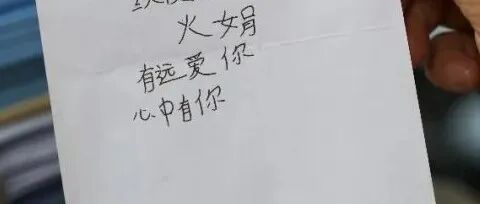 火娟
有远爱你
心中有你